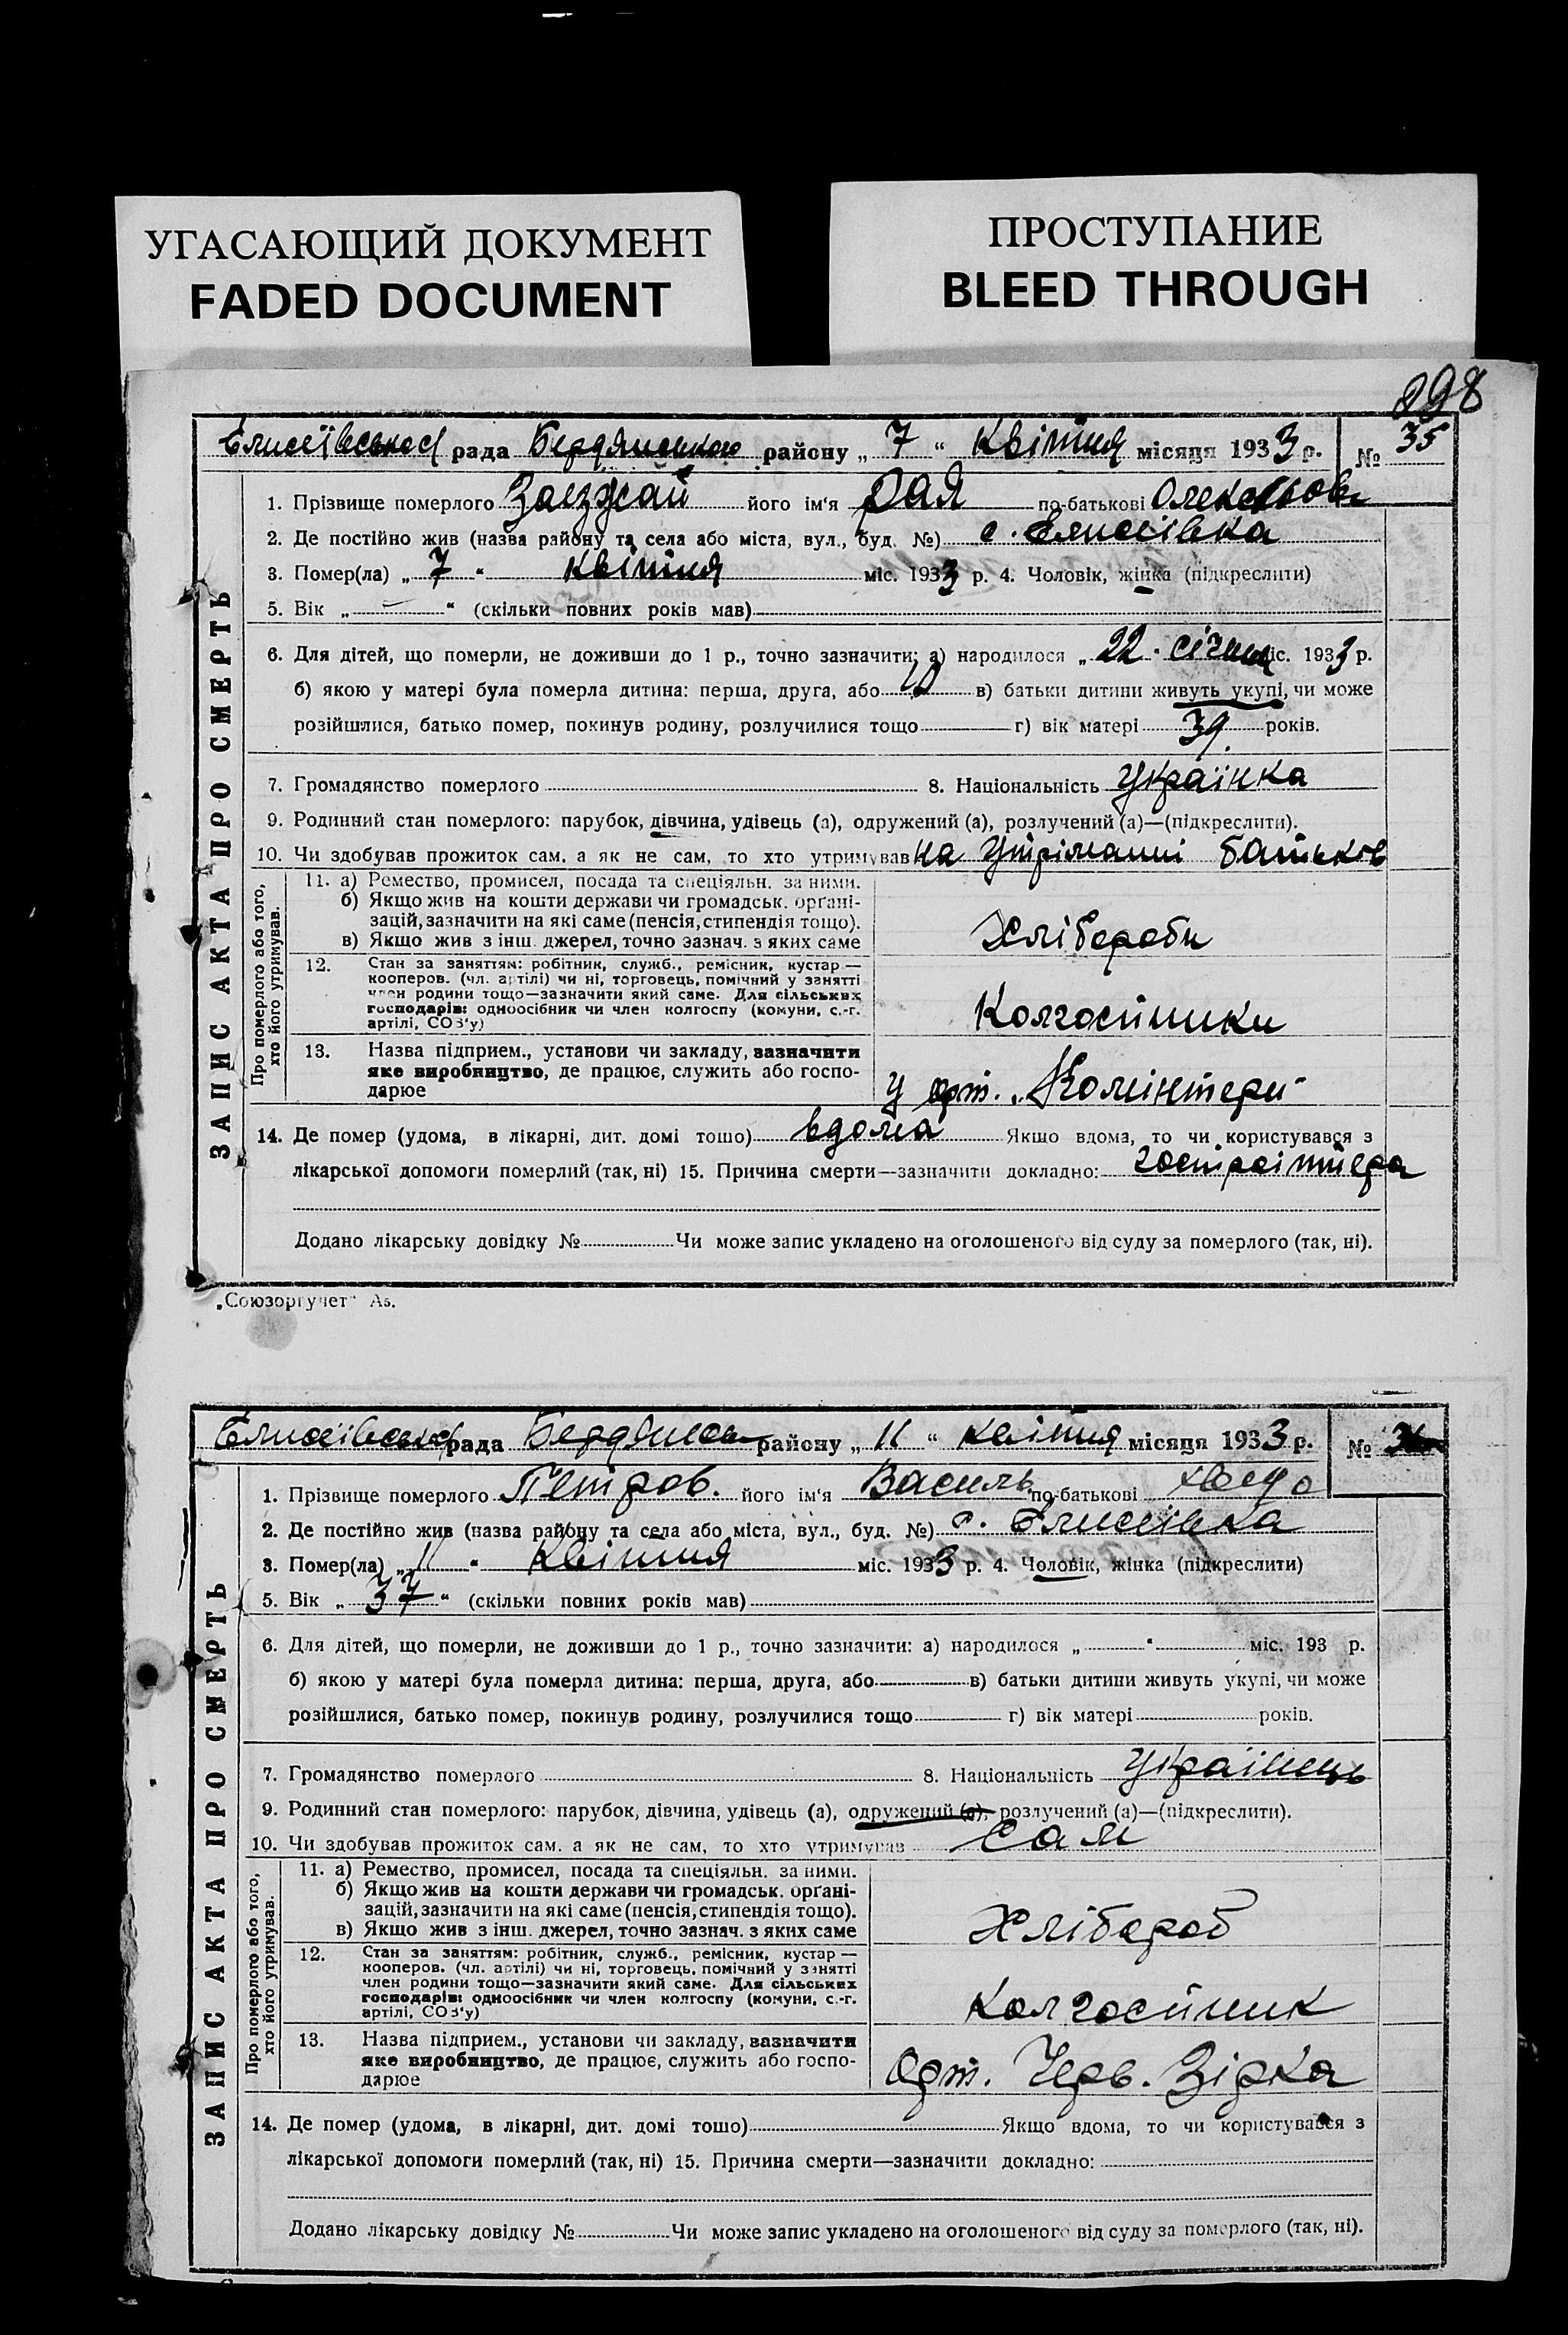 УГАСАЮЩИЙ ДОКУМЕНТ
FADED DOCUMENT
ПРОСТУПАНИЕ
BLEED THROUGH
298
ЗАПИС АКТА ПРО СМЕРТЬ
Єлисеївська рада Бердянського району „ 7 “ квітня місяця 1933 р. № 35
1. Прізвище померлого Заєзжай його ім'я Рая по-батькові
2. Де постійно жив (назва району та села або міста, вул., буд. №) с. Єлисеївка
3. Помер(ла) „ 7 “ квітня міс. 1933 р. 4. Чоловік, жінка (підкреслити)
5. Вік „ — “ (скільки повних років мав)
6. Для дітей, що померли, не доживши до 1 р., точно зазначити: а) народилося „ 22 “ січня міс. 1933 р.
б) якою у матері була померла дитина: перша, друга, або 10 в) батьки дитини живуть укупі, чи може
розійшлися, батько помер, покинув родину, розлучилися тощо г) вік матері 39 років.
7. Громадянство померлого 8. Національність Українка
9. Родинний стан померлого: парубок, дівчина, удівець (а), одружений (а), розлучений (а)—(підкреслити).
10. Чи здобував прожиток сам, а як не сам, то хто утримував на утріманні батьков
Про померлого або того, хто його утримував.
11. а) Ремество, промисел, посада та спеціяльн. за ними.
б) Якщо жив на кошти держави чи громадськ. орґані-
зацій, зазначити на які саме (пенсія, стипендія тощо).
в) Якщо жив з інш. джерел, точно зазнач. з яких саме
Хлібороби
12. Стан за заняттям: робітник, служб., ремісник, кустар—
кооперов. (чл. артілі) чи ні, торговець, помічний у занятті
член родини тощо—зазначити який саме. Для сільських
господарів: одноосібник чи член колгоспу (комуни, с.-г.
артілі, СОЗ'у)
Колгоспники
13. Назва підприєм., установи чи закладу, зазначити
яке виробництво, де працює, служить або госпо-
дарює
у арт. „Комінтерн“
14. Де помер (удома, в лікарні, дит. домі тошо) вдома Якщо вдома, то чи користувався з
лікарської допомоги померлий (так, ні) 15. Причина смерти—зазначити докладно:
Додано лікарську довідку № Чи може запис укладено на оголошеного від суду за померлого (так, ні).
„Союзоргучет“ А5.
ЗАПИС АКТА ПРО СМЕРТЬ
Єлисеївська рада Бердянськ району „ 11 “ квітня місяця 1933 р. № 36
1. Прізвище померлого Петров. його ім'я Василь по-батькові
2. Де постійно жив (назва району та села або міста, вул., буд. №) с. Єлисеївка
3. Помер(ла) „ 11 “ квітня міс. 1933 р. 4. Чоловік, жінка (підкреслити)
5. Вік „ 37 “ (скільки повних років мав)
6. Для дітей, що померли, не доживши до 1 р., точно зазначити: а) народилося „ “ міс. 193 р.
б) якою у матері була померла дитина: перша, друга, або в) батьки дитини живуть укупі, чи може
розійшлися, батько помер, покинув родину, розлучилися тощо г) вік матері років.
7. Громадянство померлого 8. Національність Українець
9. Родинний стан померлого: парубок, дівчина, удівець (а), одружений (а), розлучений (а)—(підкреслити).
10. Чи здобував прожиток сам, а як не сам, то хто утримував сам
Про померлого або того, хто його утримував.
11. а) Ремество, промисел, посада та спеціяльн. за ними.
б) Якщо жив на кошти держави чи громадськ. орґані-
зацій, зазначити на які саме (пенсія, стипендія тощо).
в) Якщо жив з інш. джерел, точно зазнач. з яких саме
Хлібороб
12. Стан за заняттям: робітник, служб., ремісник, кустар—
кооперов. (чл. артілі) чи ні, торговець, помічний у занятті
член родини тощо—зазначити який саме. Для сільських
господарів: одноосібник чи член колгоспу (комуни, с.-г.
артілі, СОЗ'у)
Колгоспник
13. Назва підприєм., установи чи закладу, зазначити
яке виробництво, де працює, служить або госпо-
дарює
Арт. Черв. Зірка
14. Де помер (удома, в лікарні, дит. домі тошо) Якщо вдома, то чи користувався з
лікарської допомоги померлий (так, ні) 15. Причина смерти—зазначити докладно:
Додано лікарську довідку № Чи може запис укладено на оголошеного від суду за померлого (так, ні).